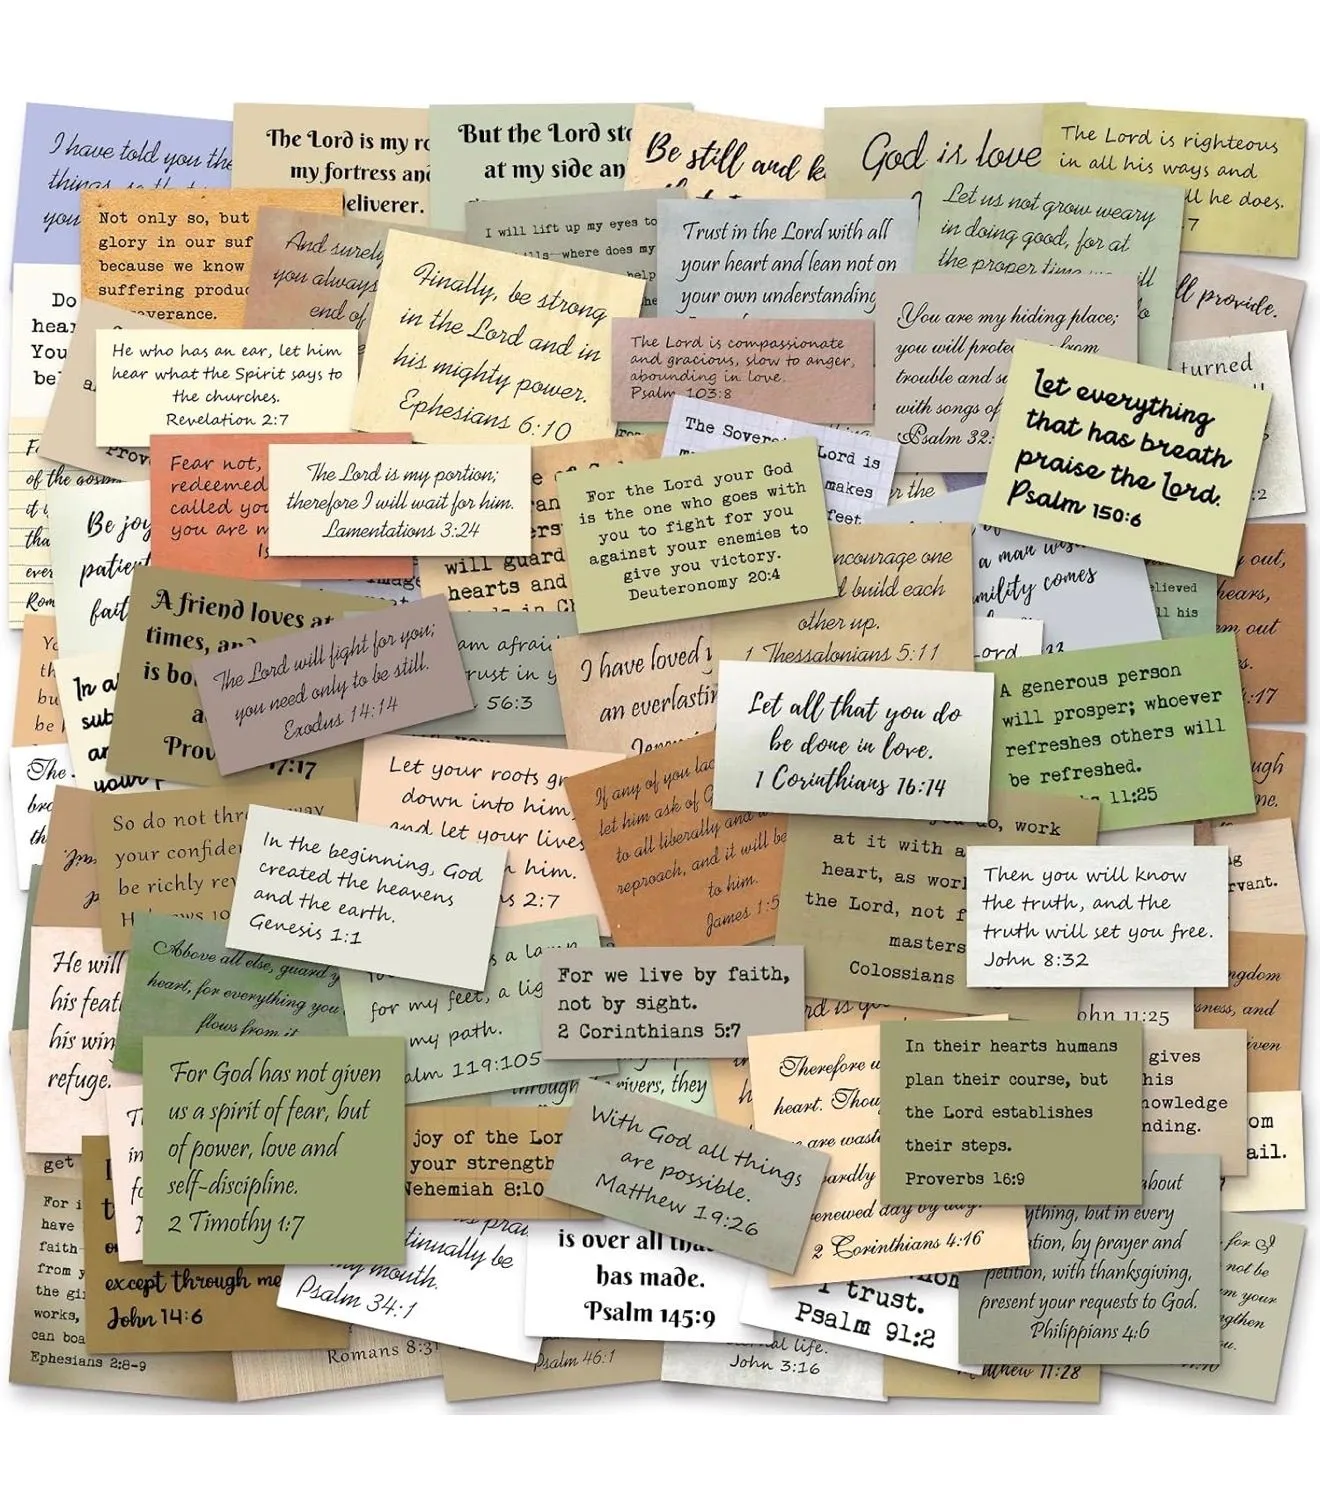 I have told you the
things, so that
you
The Lord is my ro
my fortress and
deliverer.
But the Lord sto
at my side an
Be still and k
God is love
The Lord is righteous
in all his ways and
ll he does.
7
Not only so, but
glory in our suf
because we know
suffering produc
everance.
And surely
you always
end of
I will lift up my eyes to
lls—where does my
help
Trust in the Lord with all
your heart and lean not on
your own understanding
Let us not grow weary
in doing good, for at
the proper time we will
ll provide.
Do
hear
You
be
Finally, be strong
in the Lord and in
his mighty power.
Ephesians 6:10
You are my hiding place;
you will protec from
trouble and su
with songs of
Psalm 32:
He who has an ear, let him
hear what the Spirit says to
the churches.
Revelation 2:7
The Lord is compassionate
and gracious, slow to anger,
abounding in love.
Psalm 103:8
turned
:2
Let everything
that has breath
praise the Lord.
Psalm 150:6
Prov
The Sovere Lord is
makes
feet
Fear not,
redeemed
called yo
you are m
Is
The Lord is my portion;
therefore I will wait for him.
Lamentations 3:24
of the gosp
it i
tha
ever
Rom
Be joy
patient
fait
will guard
hearts and
ds in Ch
For the Lord your God
is the one who goes with
you to fight for you
against your enemies to
give you victory.
Deuteronomy 20:4
r the
ncourage one
d build each
other up.
1 Thessalonians 5:11
a man wis
mility comes
elieved
ll his
out,
hears,
m out
s.
4:17
A friend loves at
times, an
is bo
a
Prov 17:17
The Lord will fight for you;
you need only to be still.
Exodus 14:14
am afrai
rust in y
56:3
I have loved y
an everlastin
Jeremi
Yo
th
bu
be
In a
sub
an
your p
Let all that you do
be done in love.
1 Corinthians 16:14
A generous person
will prosper; whoever
refreshes others will
be refreshed.
bs 11:25
The
bro
th
Let your roots gr
down into him,
and let your lives
n him.
s 2:7
If any of you lac
let him ask of G
to all liberally and w
reproach, and it will be
to him.
James 1:5
ugh
me.
So do not thr way
your confide
be richly rew
Hebrews 10
In the beginning, God
created the heavens
and the earth.
Genesis 1:1
you do, work
at it with a
heart, as work
the Lord, not f
masters
Colossians
Then you will know
the truth, and the
truth will set you free.
John 8:32
rvant.
He will
his feat
his win
refuge.
Above all else, guard y
heart, for everything you
flows from it
s a lamp
for my feet, a lig
my path.
alm 119:105
For we live by faith,
not by sight.
2 Corinthians 5:7
ohn 11:25
ngdom
sness, and
iven
For God has not given
us a spirit of fear, but
of power, love and
self-discipline.
2 Timothy 1:7
through rivers, they
Therefore w
heart. Thou
are wasti
ardly
enewed day by day.
2 Corinthians 4:16
In their hearts humans
plan their course, but
the Lord establishes
their steps.
Proverbs 16:9
gives
his
nowledge
nding.
om
ail.
joy of the Lor
your strength
Nehemiah 8:10
With God all things
are possible.
Matthew 19:26
get
For i
have
faith—
from y
the gi
works,
can boa
Ephesians 2:8-9
except through me
John 14:6
s prai
tinually be
my mouth.
Psalm 34:1
is over all tha
has made.
Psalm 145:9
I trust.
Psalm 91:2
about
ything, but in every
tion, by prayer and
petition, with thanksgiving,
present your requests to God.
Philippians 4:6
for I
not be
m your
gthen
u.
Romans 8:31
Psalm 46:1
nal life.
John 3:16
Matthew 11:28